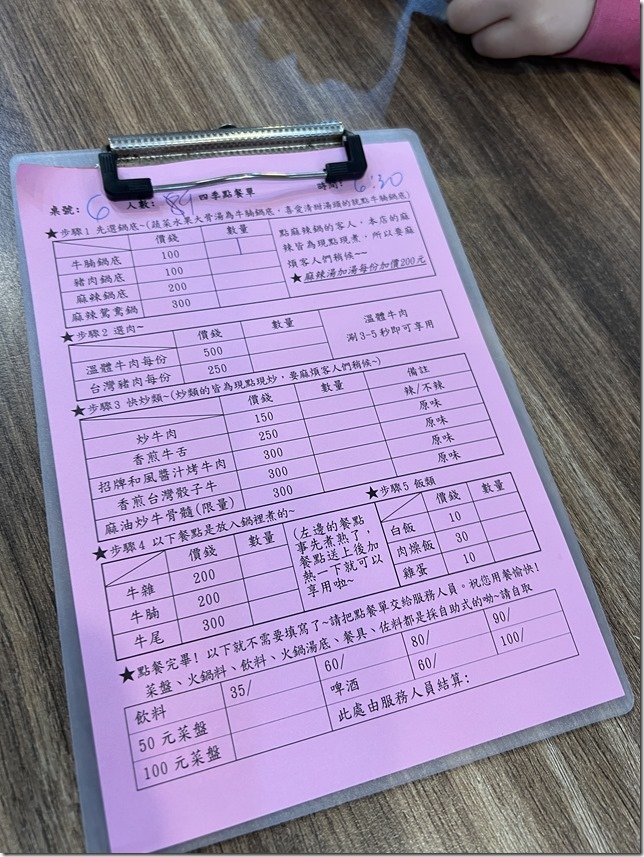 四季點餐單
桌號: 6 人數: 時間: 6:30
★步驟1 先選鍋底~(蔬菜水果大骨湯為牛腩鍋底,喜愛清甜湯頭的就點牛腩鍋底)
價錢 數量
牛腩鍋底 100
豬肉鍋底 100
麻辣鍋底 200
麻辣鴛鴦鍋 300
點麻辣鍋的客人,本店的麻
辣皆為現點現煮,所以要麻
煩客人們稍候~~
★麻辣湯加湯每份加價200元
★步驟2 選肉~
價錢 數量
溫體牛肉每份 500
台灣豬肉每份 250
溫體牛肉
涮3-5秒即可享用
★步驟3 快炒類~(炒類的皆為現點現炒,要麻煩客人們稍候~)
價錢 數量 備註
炒牛肉 150 辣/不辣
香煎牛舌 250 原味
招牌和風醬汁烤牛肉 300 原味
香煎台灣骰子牛 300 原味
麻油炒牛骨髓(限量) 300 原味
★步驟4 以下餐點是放入鍋裡煮的~
價錢 數量
牛雜 200
牛腩 200
牛尾 300
(左邊的餐點
事先煮熟了,
餐點送上後加
熱一下就可以
享用啦~
★步驟5 飯類
價錢 數量
白飯 10
肉燥飯 30
雞蛋 10
★點餐完畢!以下就不需要填寫了~請把點餐單交給服務人員。祝您用餐愉快!
菜盤、火鍋料、飲料、火鍋湯底、餐具、佐料都是採自助式的呦~請自取
飲料 35/ 60/ 80/ 90/
50元菜盤 啤酒 60/ 100/
100元菜盤 此處由服務人員結算: